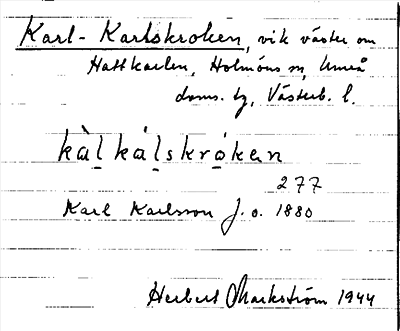 Karl-Karlskroken, vik väster om
Hattkarlen, Holmöns sn, Umeå
doms. tg, Västerb. l.
kàl kálskróken
277
Karl Karlsson f. o. 1880
Herbert Markström 1944